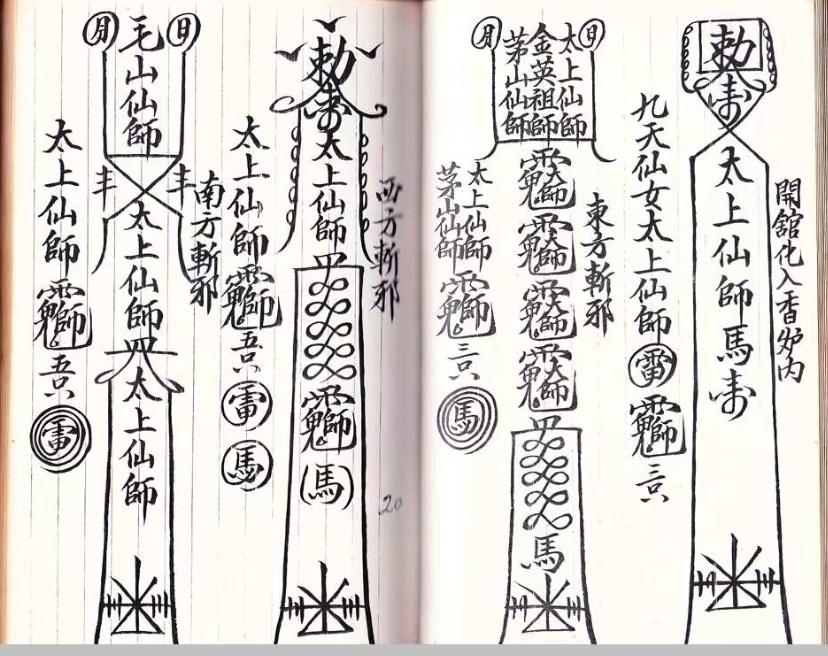 開舘化入香炉内
勅
太上仙師馬
九天仙女太上仙師
雷
三只
東方斬邪
日
太上仙師
金英祖師
茅山仙師
月
馬
太上仙師
茅山仙師
三只
馬
西方斬邪
勅
太上仙師
馬
20
太上仙師
五只
雷
馬
南方斬邪
日
毛山仙師
月
太上仙師
太上仙師
太上仙師
五只
雷